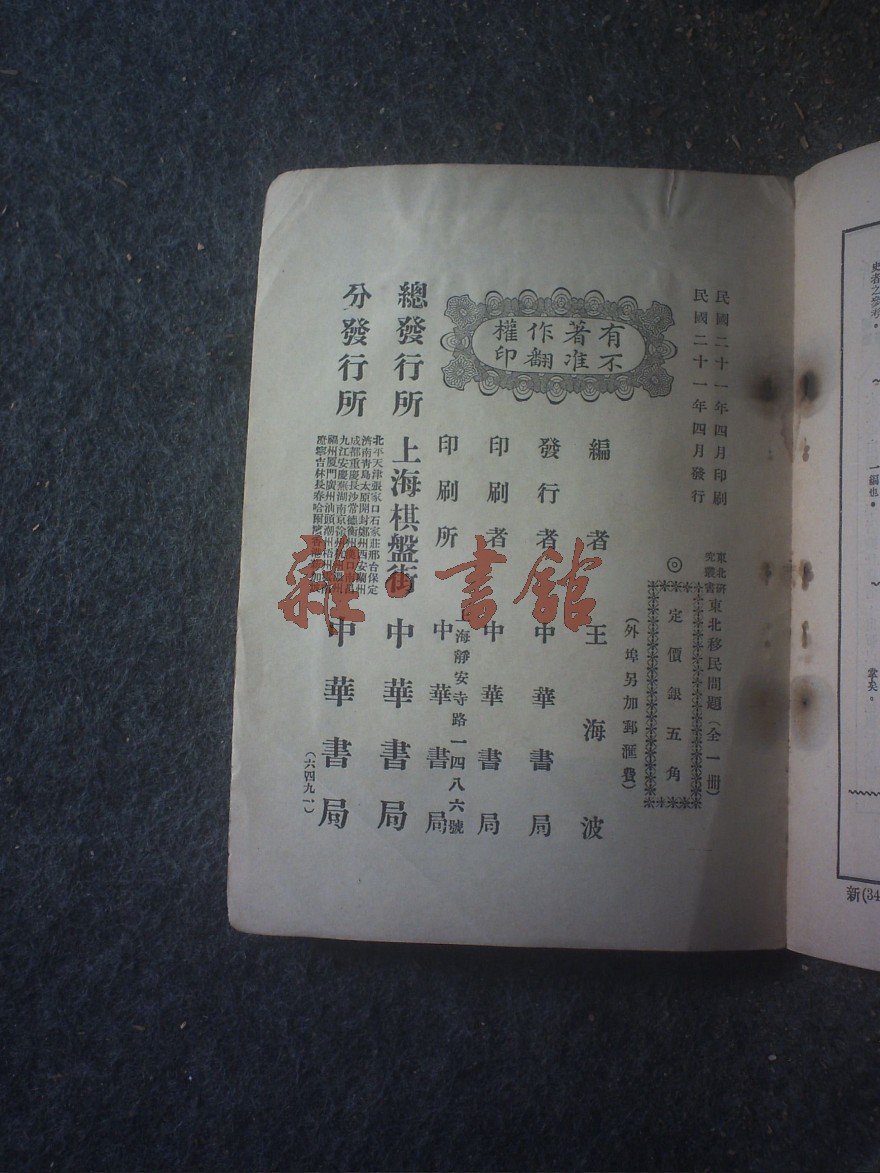 民國二十一年四月印刷
民國二十一年四月發行
東北研
究叢書
東北移民問題(全一冊)
◎定價銀五角
(外埠另加郵匯費)
有不
著准
作翻
權印
編者 王海波
發行者 中華書局
印刷者 中華書局
上海靜安寺路一四八六號
印刷所 中華書局
總發行所 上海棋盤街 中華書局
分發行所
北平天津張家口石家莊邢台保定
濟南青島太原開封鄭州西安蘭州
成都重慶長沙常德衡州
九江安慶蕪湖南京徐州
福州厦門廣州汕頭潮州梧州
遼寧吉林長春哈爾
中華書局
(六四九一)
雜·書館
史者之參考。
一編也。
章矣。
新(34